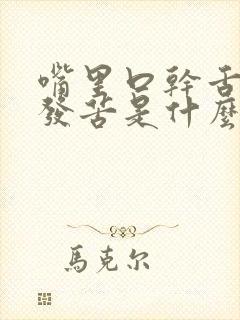 嘴里口幹舌
發苦是什麽
馬克尔